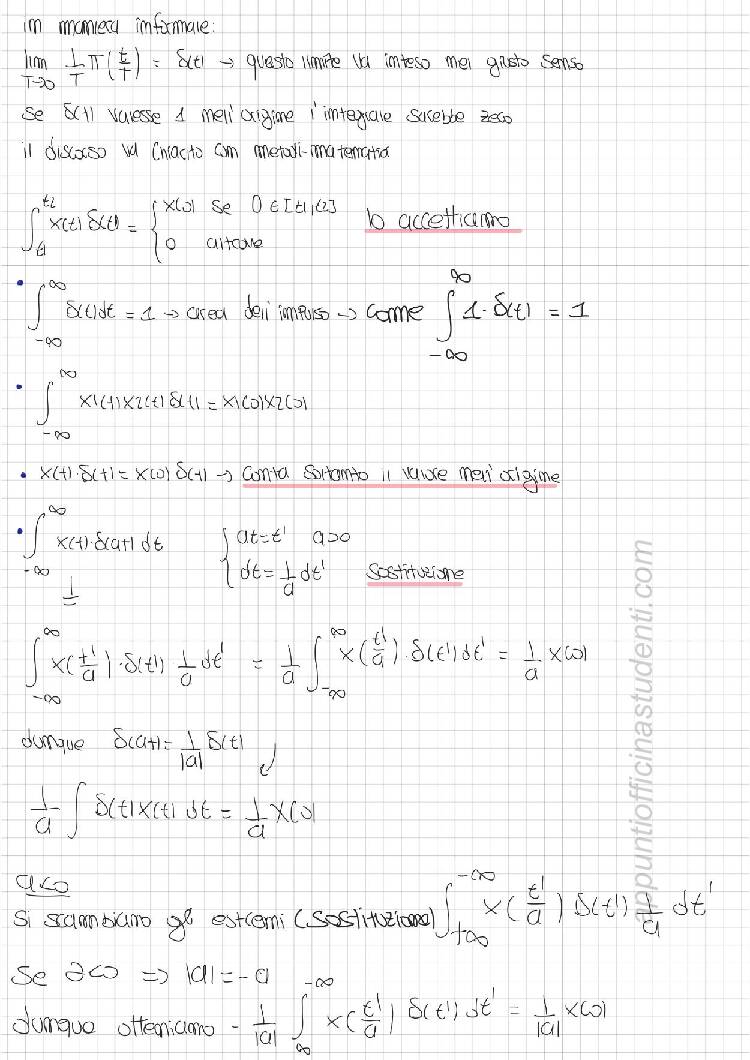 in maniera informale:
lim T→0 1/T π(t/T) = δ(t) → questo limite va inteso nel giusto senso
se δ(t) valesse 1 nell'origine l'integrale sarebbe zero
il discorso va chiarito con metodi matematici
∫_{t1}^{t2} x(t) δ(t) = { x(0) se 0 ∈ [t1,t2] lo accettiamo
0 altrove
• ∫_{-∞}^{∞} δ(t)dt = 1 → area dell'impulso → come ∫_{-∞}^{∞} 1·δ(t) = 1
• ∫_{-∞}^{∞} x1(t)x2(t)δ(t) = x1(0)x2(0)
• x(t)·δ(t) = x(0) δ(t) → conta soltanto il valore nell'origine
• ∫_{-∞}^{∞} x(t)·δ(at) dt { at=t' a>0
dt = 1/a dt' sostituzione
∫_{-∞}^{∞} x(t'/a)·δ(t') 1/a dt' = 1/a ∫_{-∞}^{∞} x(t'/a)·δ(t')dt' = 1/a x(0)
dunque δ(at) = 1/|a| δ(t)
1/a ∫ δ(t)x(t) dt = 1/a x(0)
a<0
si scambiano gli estremi (sostituzione) ∫_{+∞}^{-∞} x(t'/a) δ(t') 1/a dt'
Se a<0 ⇒ |a| = -a
dunque otteniamo - 1/|a| ∫_{∞}^{-∞} x(t'/a) δ(t') dt' = 1/|a| x(0)
appuntiofficinastudenti.com